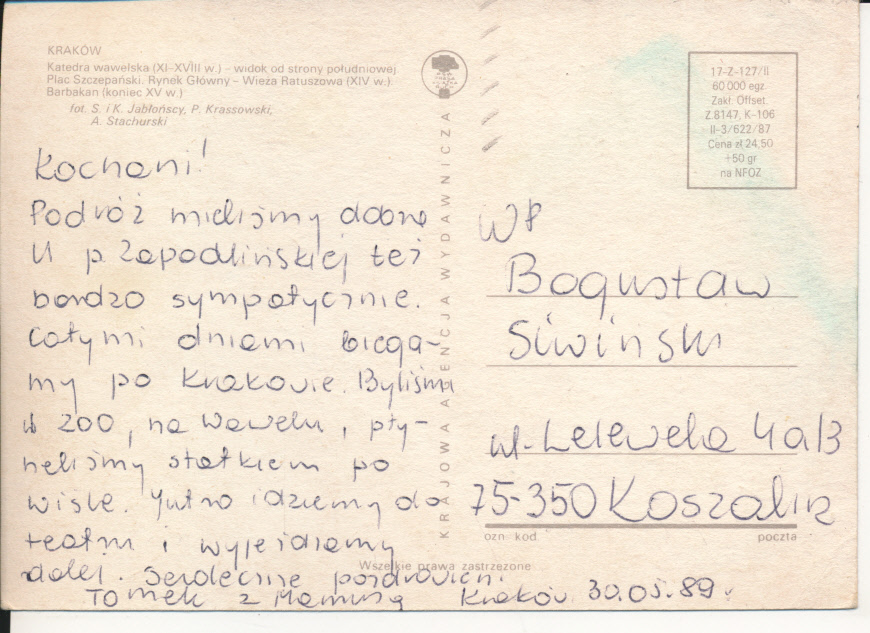 KRAKÓW
Katedra wawelska (XI-XVIII w.) – widok od strony południowej
Plac Szczepański. Rynek Główny – Wieża Ratuszowa (XIV w.).
Barbakan (koniec XV w.)
fot. S. i K. Jabłońscy, P. Krassowski,
A. Stachurski
Kochani!
Podróż mieliśmy dobrą
U p. Zapodlińskiej też
bardzo sympatycznie.
Całymi dniami biega-
my po Krakowie. Byliśmy
w ZOO, na Wawelu, pły-
neliśmy statkiem po
Wiśle. Jutro idziemy do
teatru i wyjeżdżamy
dalej. Serdecznie pozdrowien.
Tomek z Mamusią
Kraków 30.05.89.
KRAJOWA AGENCJA WYDAWNICZA
Wszelkie prawa zastrzeżone
17-Z-127/II
60 000 egz.
Zakł. Offset.
Z.8147, K-106
II-3/622/87
Cena zł 24,50
+50 gr
na NFOZ
WP
Bogusław
Siwiński
ul. Lelewela 4a/3
75-350 Koszalin
ozn. kod.
poczta